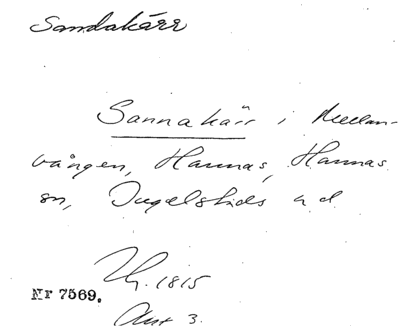 Sandakärr
Sannakärr i Mellan-
vången, Hannas, Hannas
sn, Ingelstads hd
Lk. 1815
Nr 7569.
Akt 3.